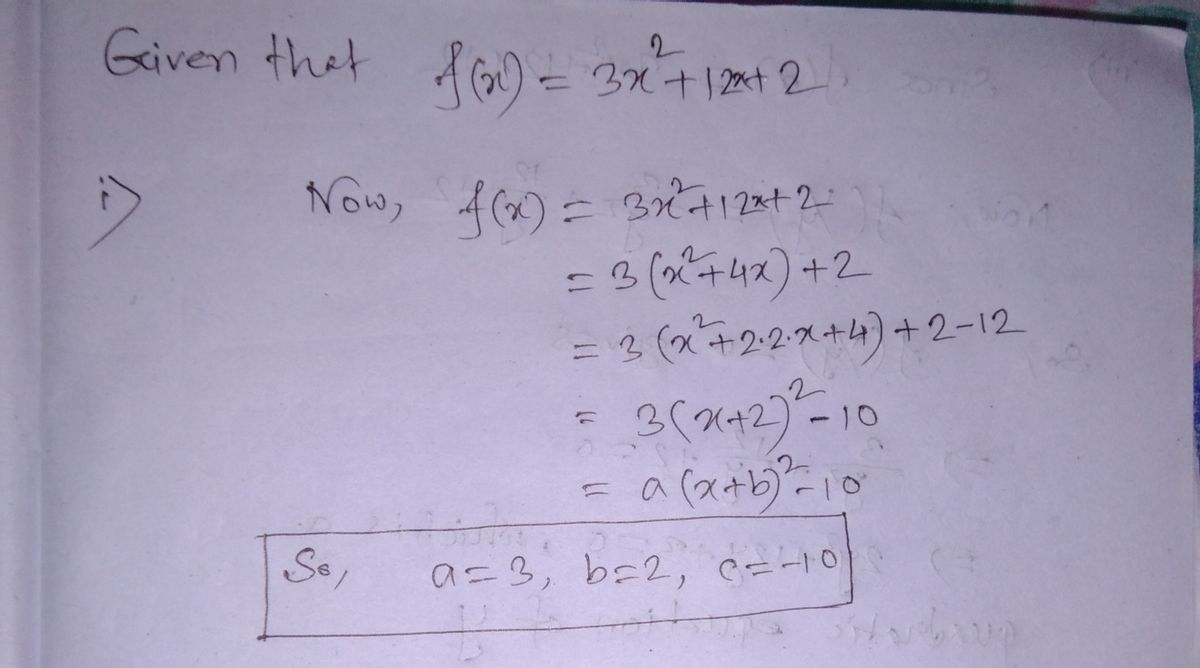 Given that f(x) = 3x²+12x+2
i) Now, f(x) = 3x²+12x+2
= 3(x²+4x)+2
= 3(x²+2·2·x+4)+2-12
= 3(x+2)²-10
= a(x+b)²-10
So, a=3, b=2, c=-10